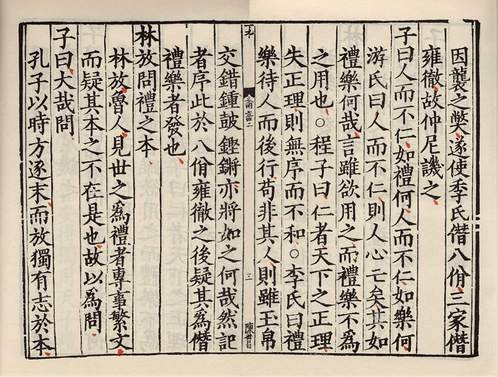 因襲之弊遂使季氏僭八佾三家僭
雍徹故仲尼譏之
子曰人而不仁如禮何人而不仁如樂何
游氏曰人而不仁則人心亡矣其如
禮樂何哉言雖欲用之而禮樂不爲
之用也○程子曰仁者天下之正理
失正理則無序而不和○李氏曰禮
樂待人而後行苟非其人則雖玉帛
交錯鍾鼓鏗鏘亦將如之何哉然記
者序此於八佾雍徹之後疑其爲僭
禮樂者發也
林放問禮之本
林放魯人見世之爲禮者專事繁文
而疑其本之不在是也故以爲問
子曰大哉問
孔子以時方逐末而放獨有志於本